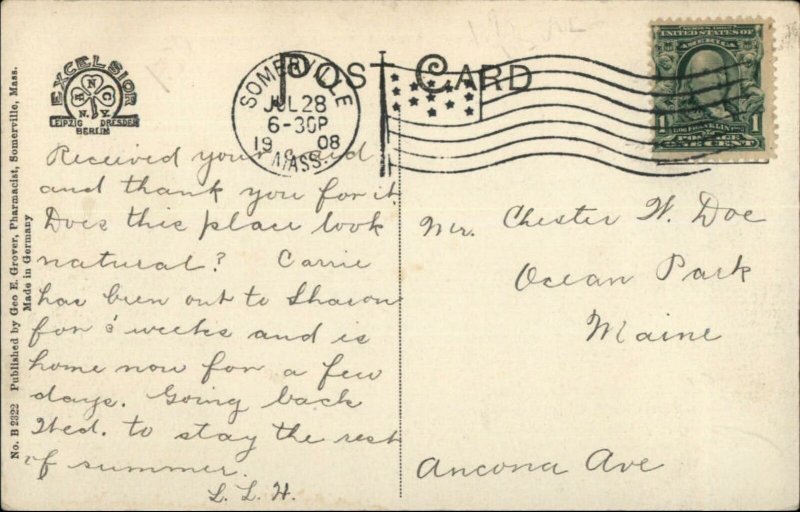 POST CARD
EXCELSIOR
N
N C
N.Y.
LEIPZIG DRESDEN
BERLIN
SOMERVILLE
JUL 28
6-30P
19 08
MASS.
SERIES 1902
UNITED STATES OF
AMERICA
1 FRANKLIN 1
POSTAGE
ONE CENT
No. B 2322 Published by Geo E. Grover, Pharmacist, Somerville, Mass.
Made in Germany
Received your card
and thank you for it.
Does this place look
natural? Carrie
has been out to Sharon
for 3 weeks and is
home now for a few
days. Going back
Wed. to stay the rest
of summer.
L. L. H.
Mr. Chester W. Doe
Ocean Park
Maine
Ancona Ave